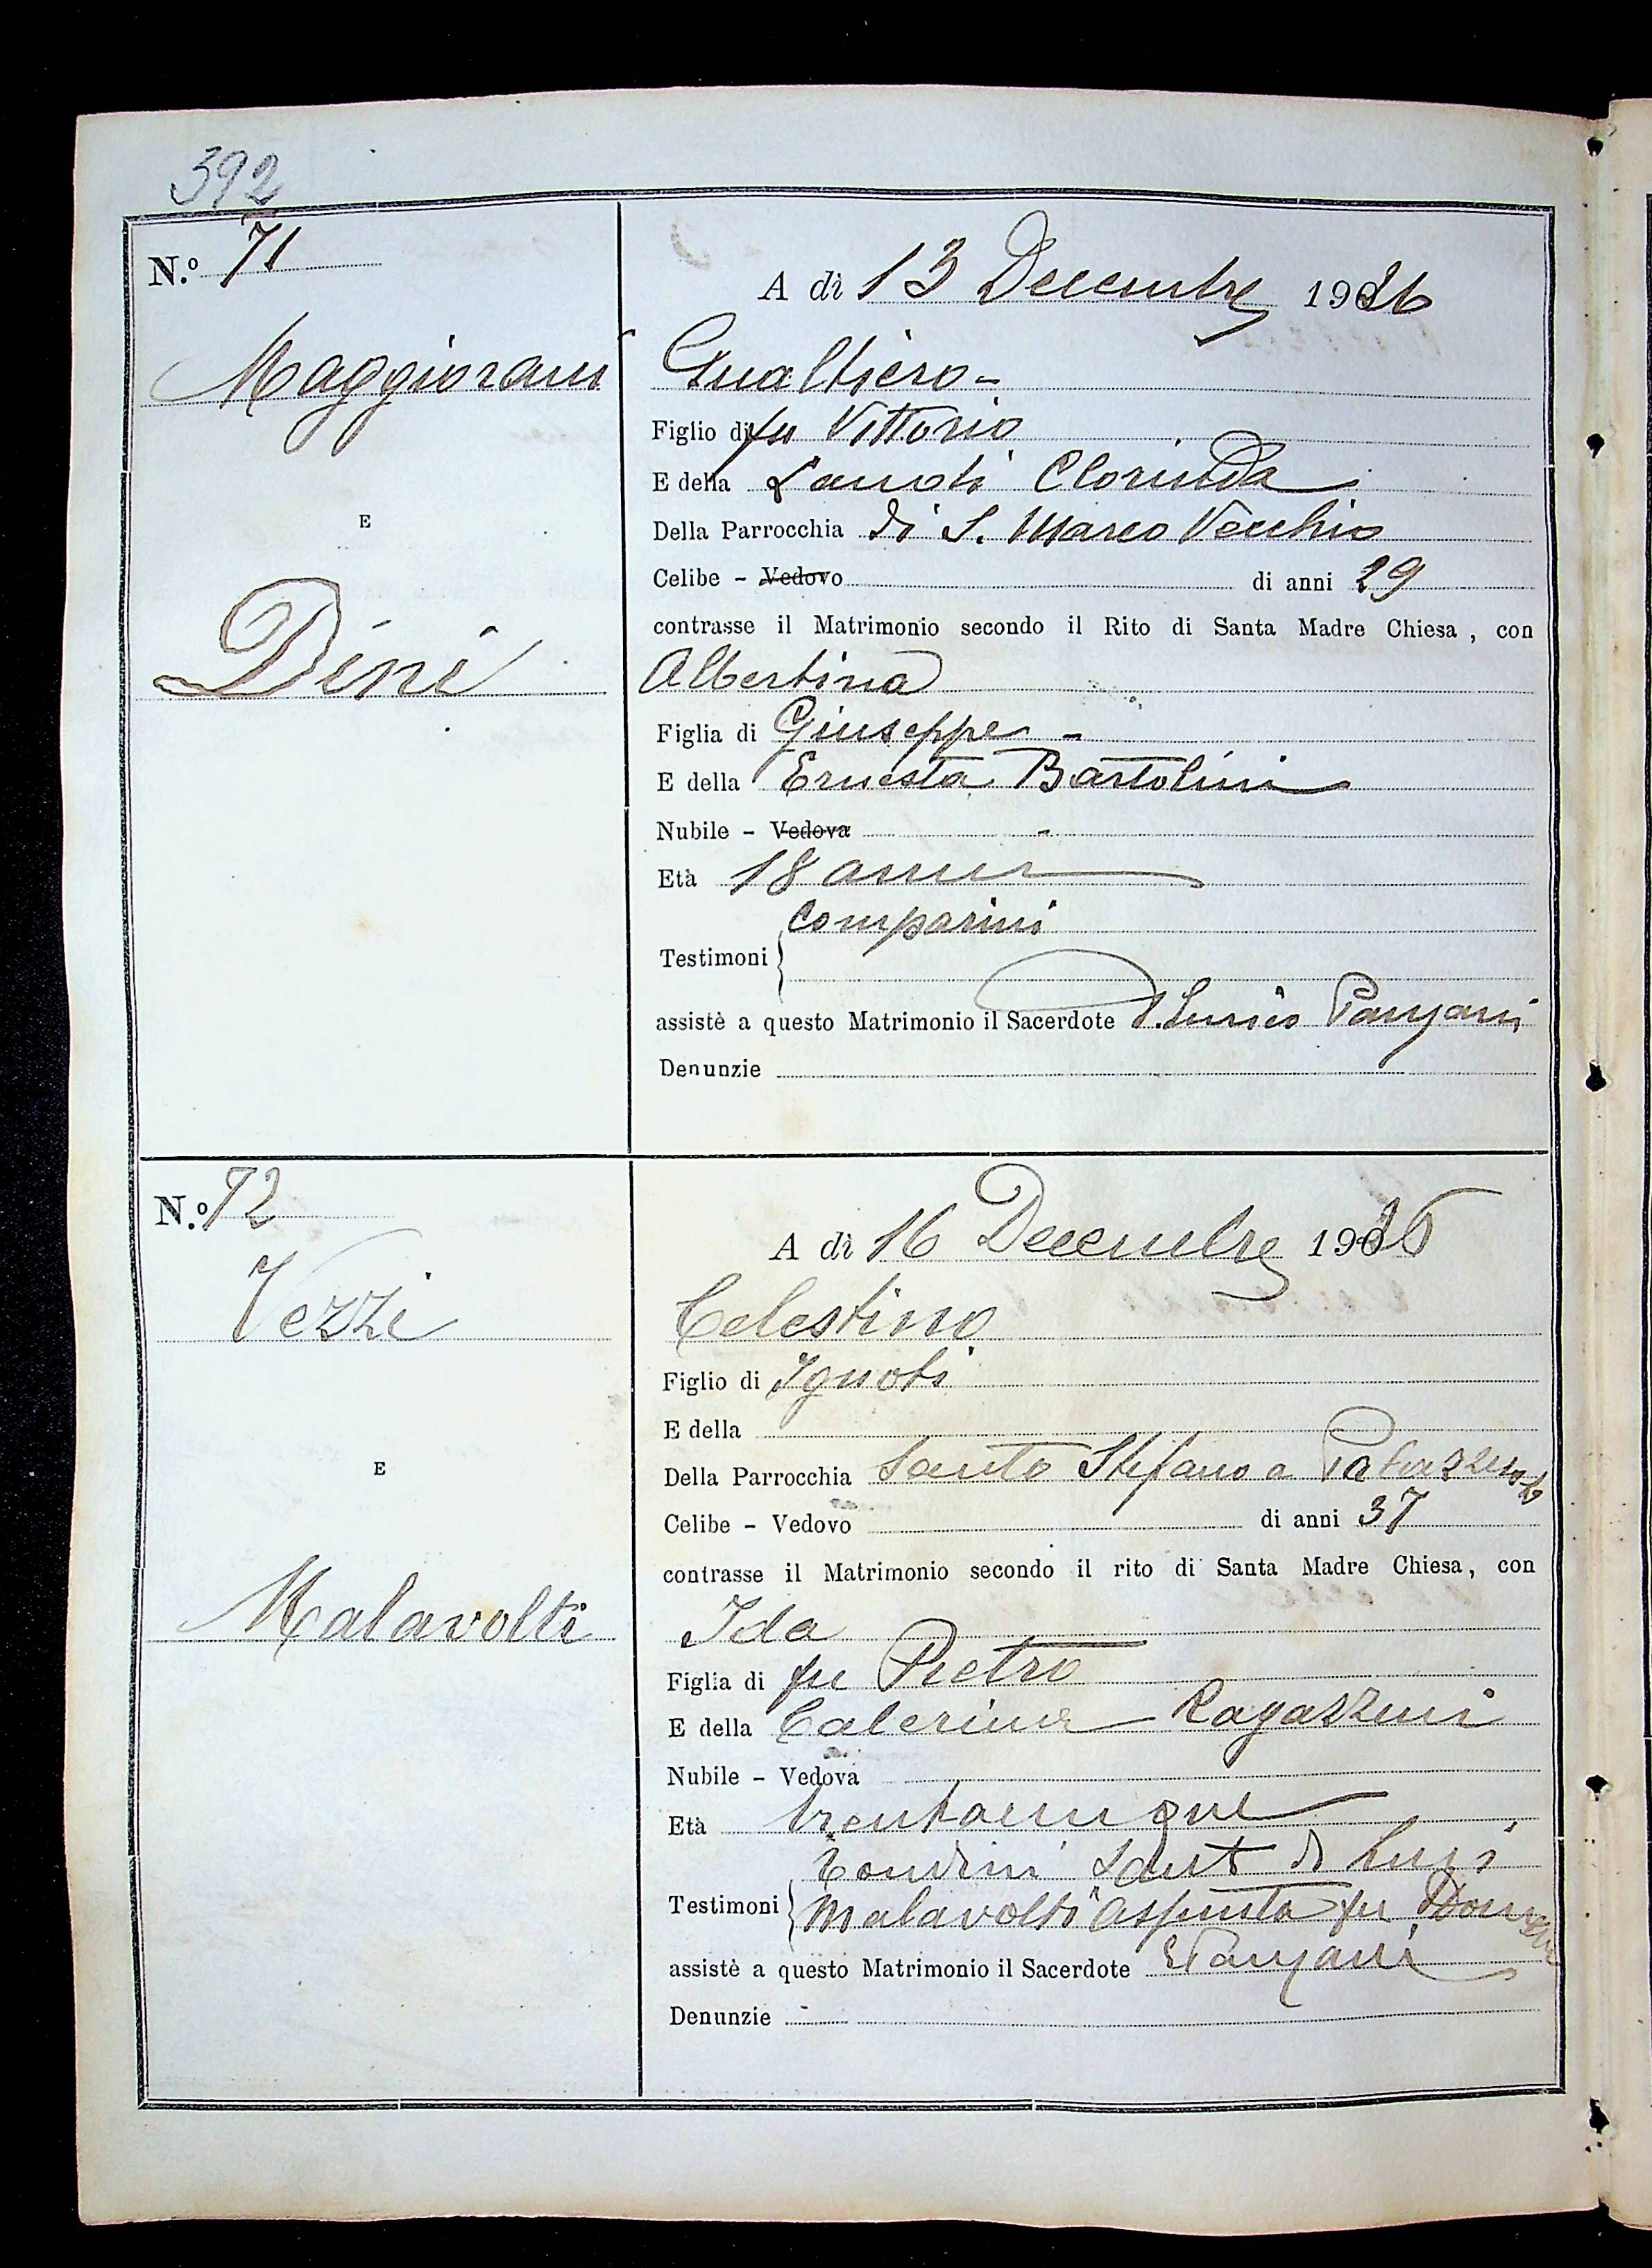 392
N.º 71
A dì 13 Decembre 1926
Maggiorani
Gualtiero -
Figlio di fu Vittorio
E della Clorinda
E
Della Parrocchia di S. Marco Vecchio
Celibe - Vedovo di anni 29
contrasse il Matrimonio secondo il Rito di Santa Madre Chiesa, con
Dini
Albertina
Figlia di Giuseppe -
E della Ernesta Bartolini
Nubile - Vedova -
Età 18 anni
Comparini
Testimoni
assistè a questo Matrimonio il Sacerdote D. Enrico Panzani
Denunzie
N.º 72
A dì 16 Decembre 1926
Vezzi
Celestino
Figlio di Ignoti
E della
E
Della Parrocchia Santo Stefano a
Celibe - Vedovo di anni 37
contrasse il Matrimonio secondo il rito di Santa Madre Chiesa, con
Malavolti
Ida
Figlia di fu Pietro
E della Caterina Ragazzini
Nubile - Vedova
Età trentacinque
di Luigi
Testimoni Malavolti Assunta fu
assistè a questo Matrimonio il Sacerdote E Panzani
Denunzie